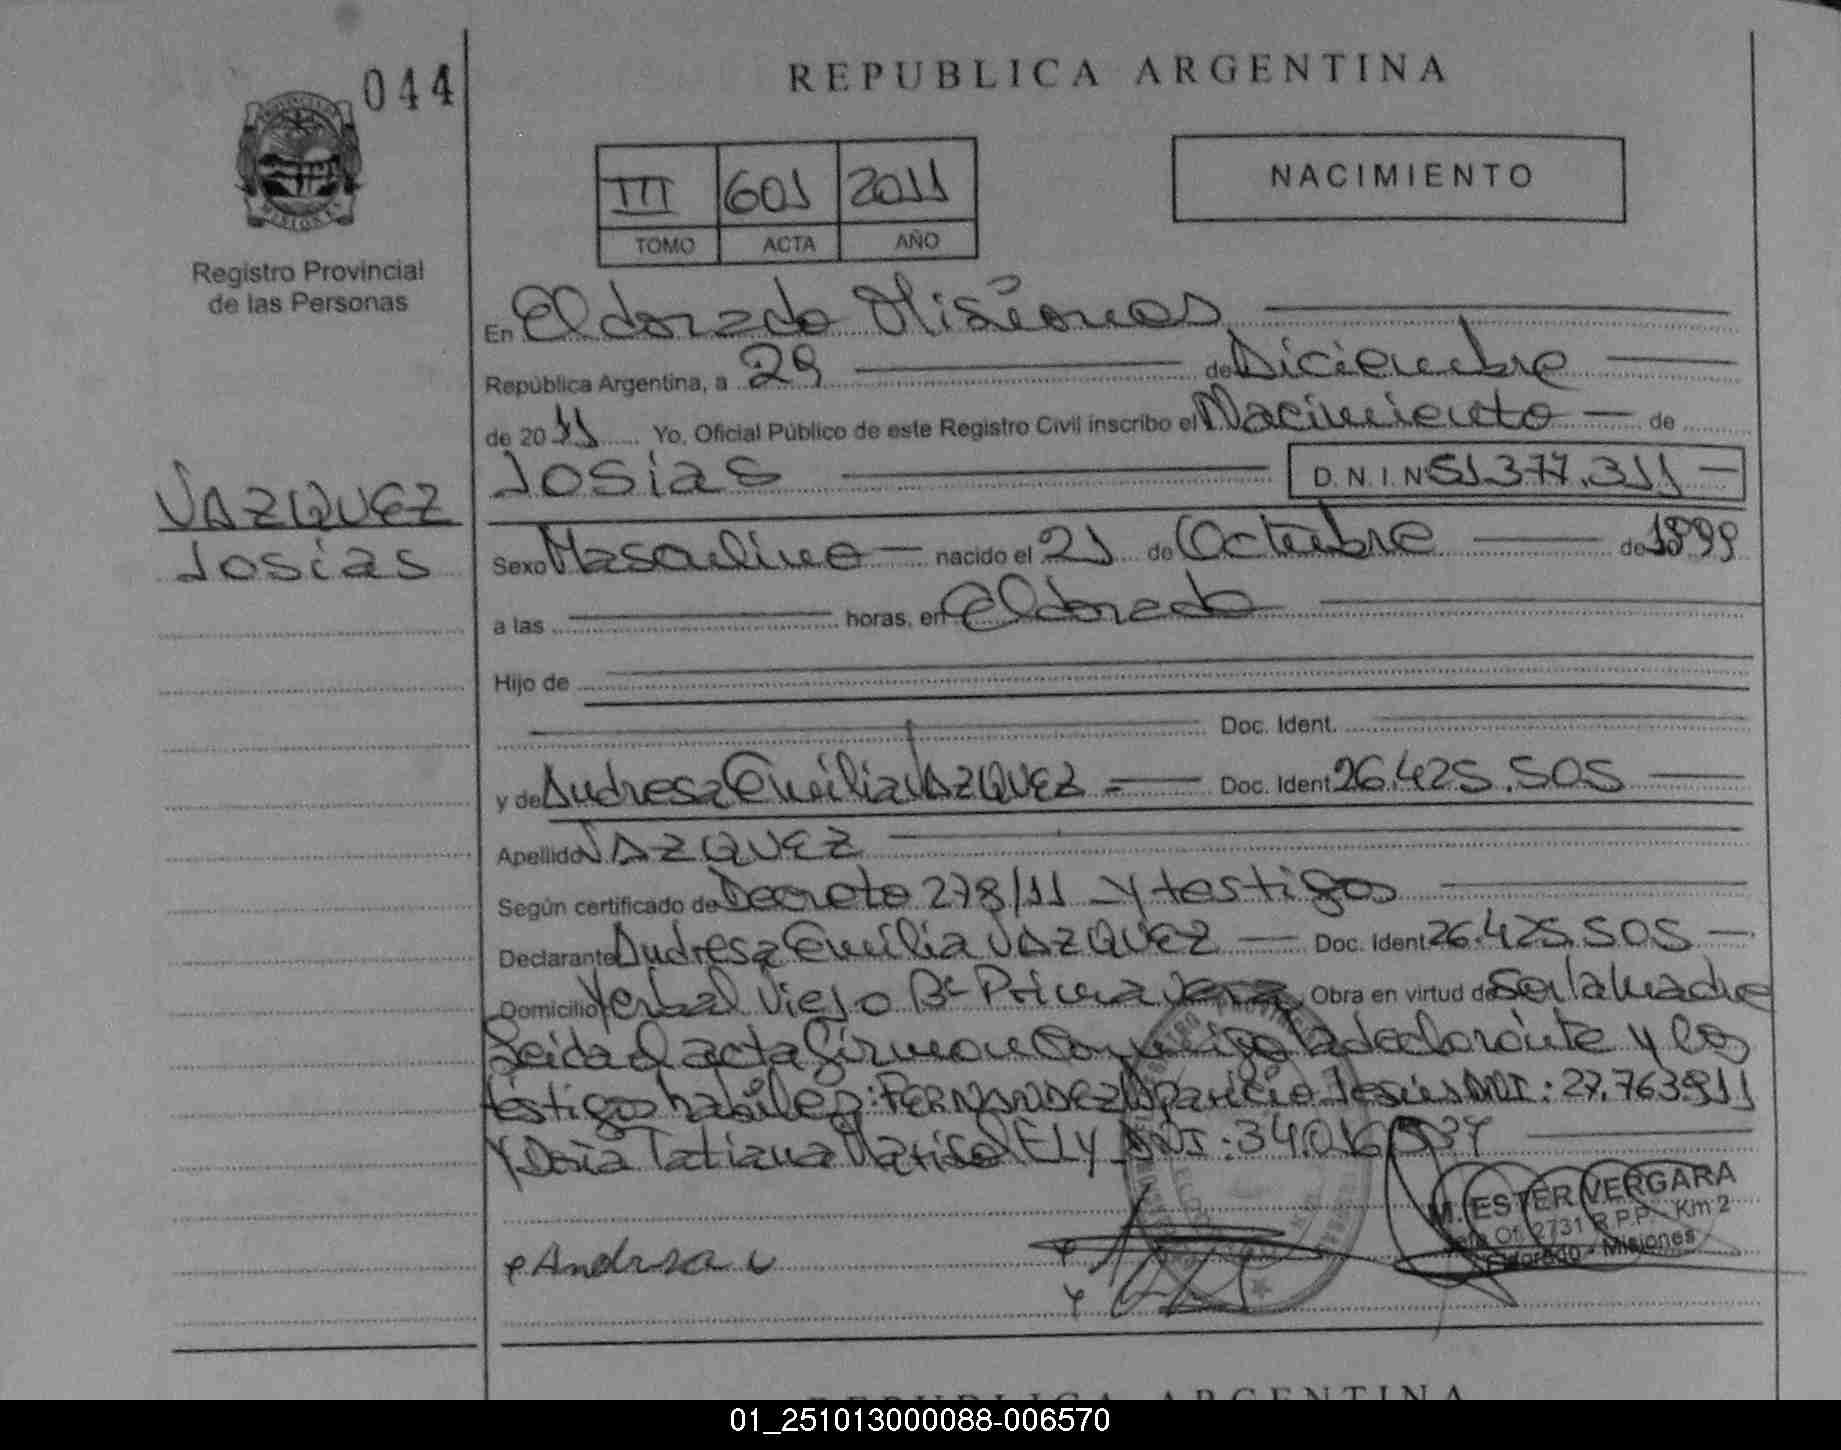 044
REPUBLICA ARGENTINA
III 601 2011
TOMO ACTA AÑO
NACIMIENTO
Registro Provincial
de las Personas
En Eldorado Misiones
República Argentina, a 29 de Diciembre
de 2011 Yo, Oficial Público de este Registro Civil inscribo el Nacimiento de
Josias D.N.I.N 51.377.311
VAZQUEZ
Josias
Sexo Masculino nacido el 21 de Octubre de 1999
a las horas, en Eldorado
Hijo de
Doc. Ident.
y de Andresa Emilia VAZQUEZ Doc. Ident 26.425.505
Apellido VAZQUEZ
Según certificado de Decreto 278/11 y testigos
Declarante Andresa Emilia VAZQUEZ Doc. Ident 26.425.505
Domicilio Yerbal Viejo Bº Primavera Obra en virtud de Ser la Madre
Leida el acta firman conmigo la declarante y los
testigos habiles: FERNANDEZ Aparicio Jesús DNI: 27.763.911
Y Doria Tatiana Marisol ELY DNI: 34.016.
Andresa v
M. ESTER VERGARA
Of. 2731 R.P.P. - Km 2
Eldorado - Misiones
REPUBLICA ARGENTINA
01_251013000088-006570